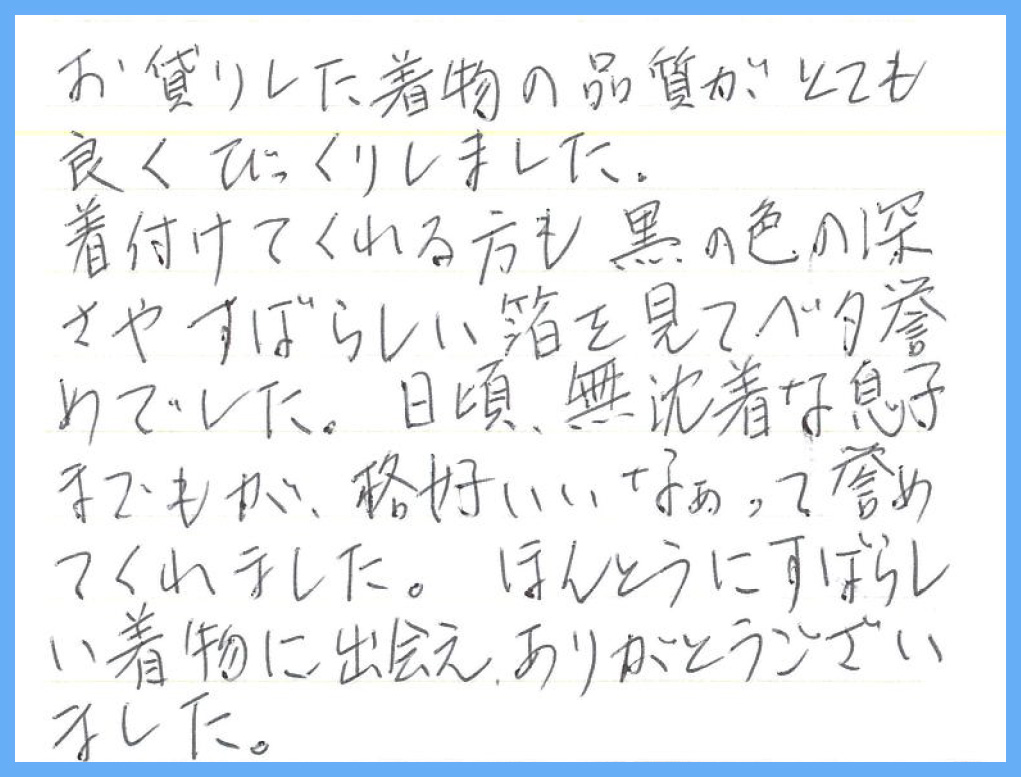 お貸りした着物の品質がとても
良くびっくりしました。
着付けてくれる方も黒の色の深
さやすばらしい箔を見てベタ誉
めでした。日頃、無沈着な息子
までもが、格好いいなぁって誉め
てくれました。ほんとうにすばらし
い着物に出会え、ありがとうござい
ました。